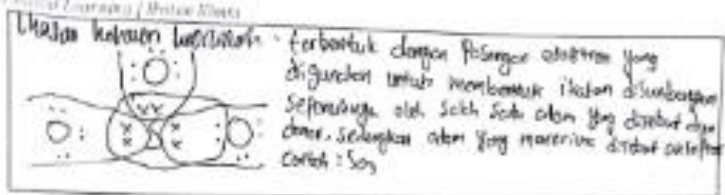 Ikatan kovalen koordinasi - terbentuk dengan Pasangan elektron yang
digunakan untuk membentuk ikatan disumbangkan
sepenuhnya oleh salah satu atom yang disebut
donor. sedangkan atom yang menerima disebut akseptor
contoh : SO3
:O:
O:
S
O: